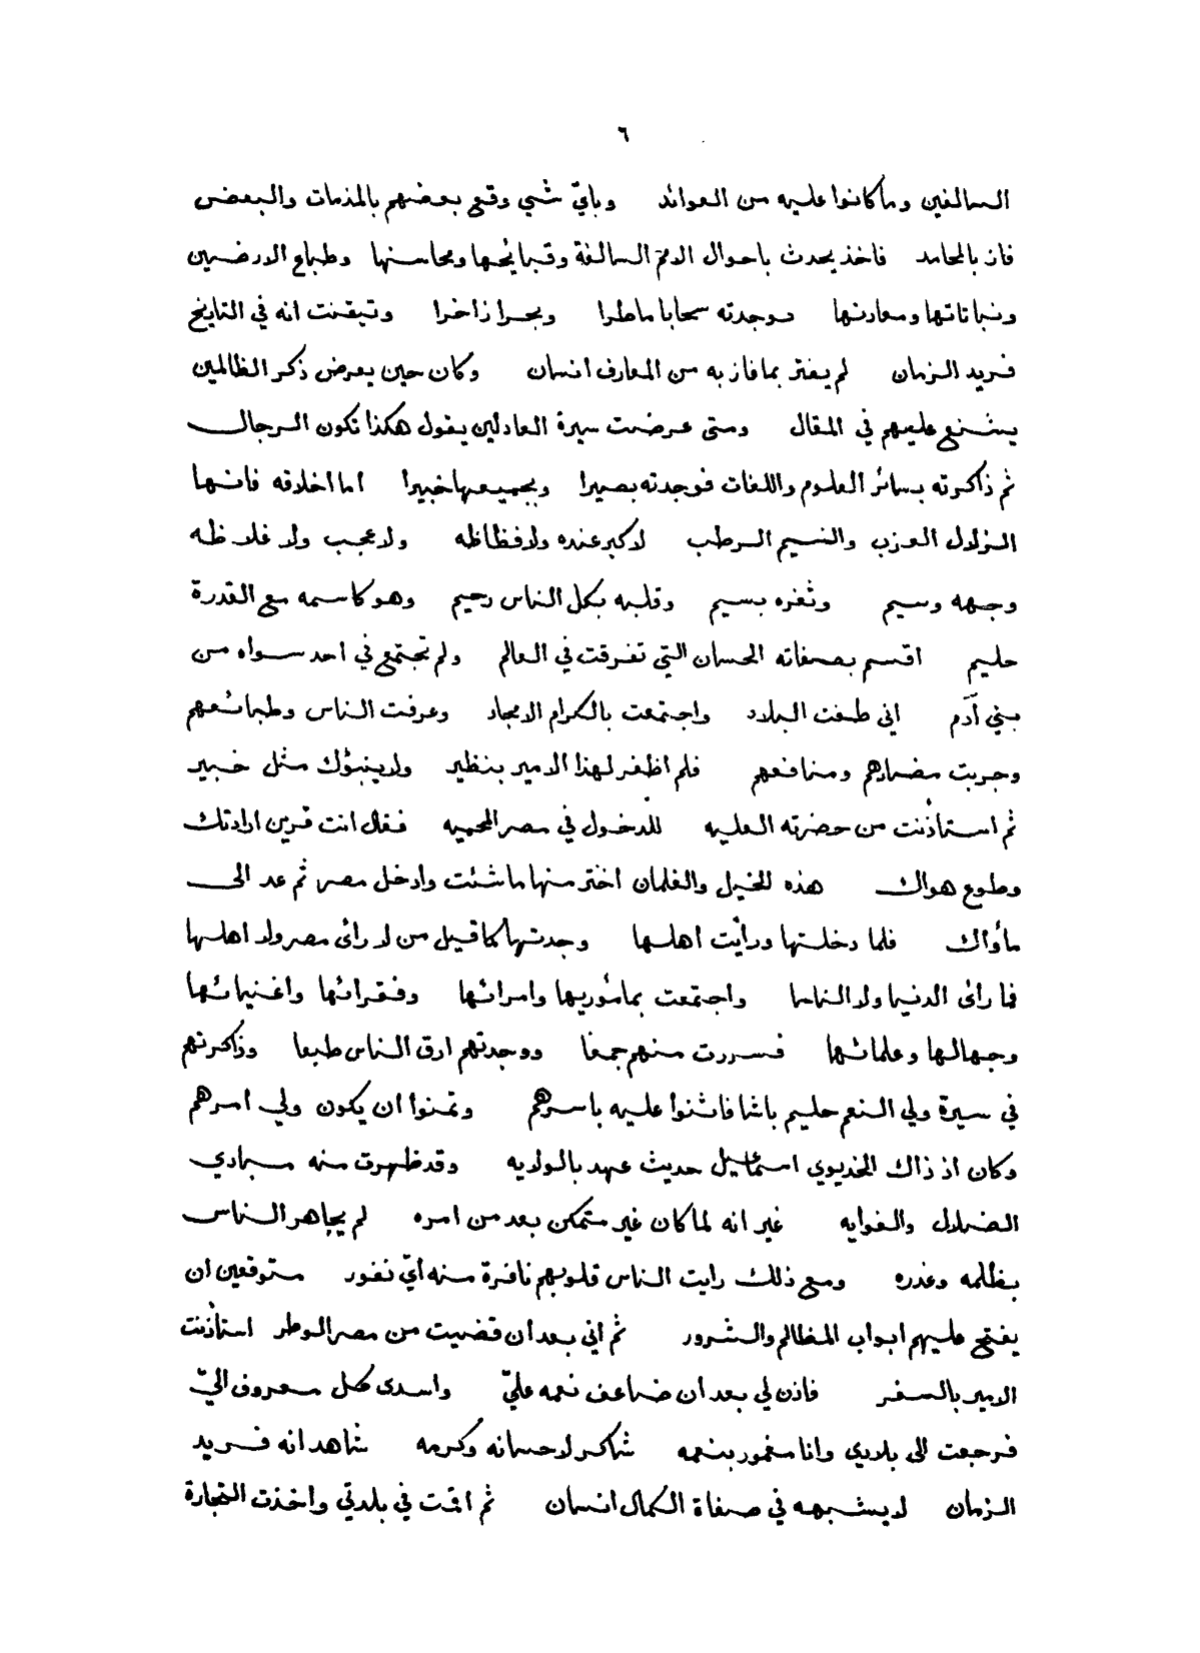 ٦
السالفين وما كانوا عليه من العوائد وباي شي وقع بعضهم بالمذمات والبعض
فاز بالمحامد فاخذ يحدث باحوال الامم السالفة وقبايحها ومحاسنها وطباع الارضين
ونباتاتها ومعادنها فوجدته سحابا ماطرا وبحرا زاخرا وتيقنت انه في التايخ
فريد الزمان لم يفتر بما فاز به من المعارف انسان وكان حين يعرض ذكر الظالمين
يشنع عليهم في المقال ومتى عرضت سيرة العادلين يقول هكذا تكون الرجال
ثم ذاكرته بسائر العلوم واللغات فوجدته بصيرا وبجميعها خبيرا اما اخلاقه فانها
الزلال العزب والنسيم الرطب لا كبر عنده ولا فظاظه ولا عجب ولا غلا ظه
وجهه وسيم وثغره بسيم وقلبه بكل الناس رحيم وهو كاسمه مع القدرة
حليم اقسم بصفاته الحسان التي تفرقت في العالم ولم تجتمع في احد سواه من
بني آدم اني طفت البلاد واجتمعت بالكرام الامجاد وعرفت الناس وطبائعهم
وجربت مضارهم ومنافعهم فلم اظفر لهذا الامير بنظير ولا ينبؤك مثل خبير
ثم استأذنت من حضرته العليه للدخول في مصر المحميه فقال انت قرين ارادتك
وطوع هواك هذه الخيل والغلمان اختر منها ما شئت وادخل مصر ثم عد الى
مأواك فلما دخلتها ورأيت اهلها وجدتها كما قيل من لا رأى مصر ولا اهلها
فما رأى الدنيا ولا الناسا واجتمعت بمأموريها وامرائها وفقرائها واغنيائها
وجهالها وعلمائها فسررت منهم جمعا ووجدتهم ارق الناس طبعا وذاكرتهم
في سيرة ولي النعم حليم باشا فاثنوا عليه باسرهم وتمنوا ان يكون ولي امرهم
وكان اذ ذاك الخديوي اسماعيل حديث عهد بالولايه وقد ظهرت منه مبادي
الضلال والغوايه غير انه لما كان غير متمكن بعد من امره لم يجاهر الناس
بظلمه وغدره ومع ذلك رايت الناس قلوبهم نافرة منه أيّ نفور متوقعين ان
يفتح عليهم ابواب المظالم والشرور ثم اني بعد ان قضيت من مصر الوطر استأذنت
الامير بالسفر فاذن لي بعد ان ضاعف نعمه عليّ واسدى كل معروف اليّ
فرجعت الى بلادي وانا مغمور بنعمه شاكر لاحسانه وكرمه شاهد انه فريد
الزمان لا يشبهه في صفاة الكمال انسان ثم اقمت في بلدتي واخذت التجارة